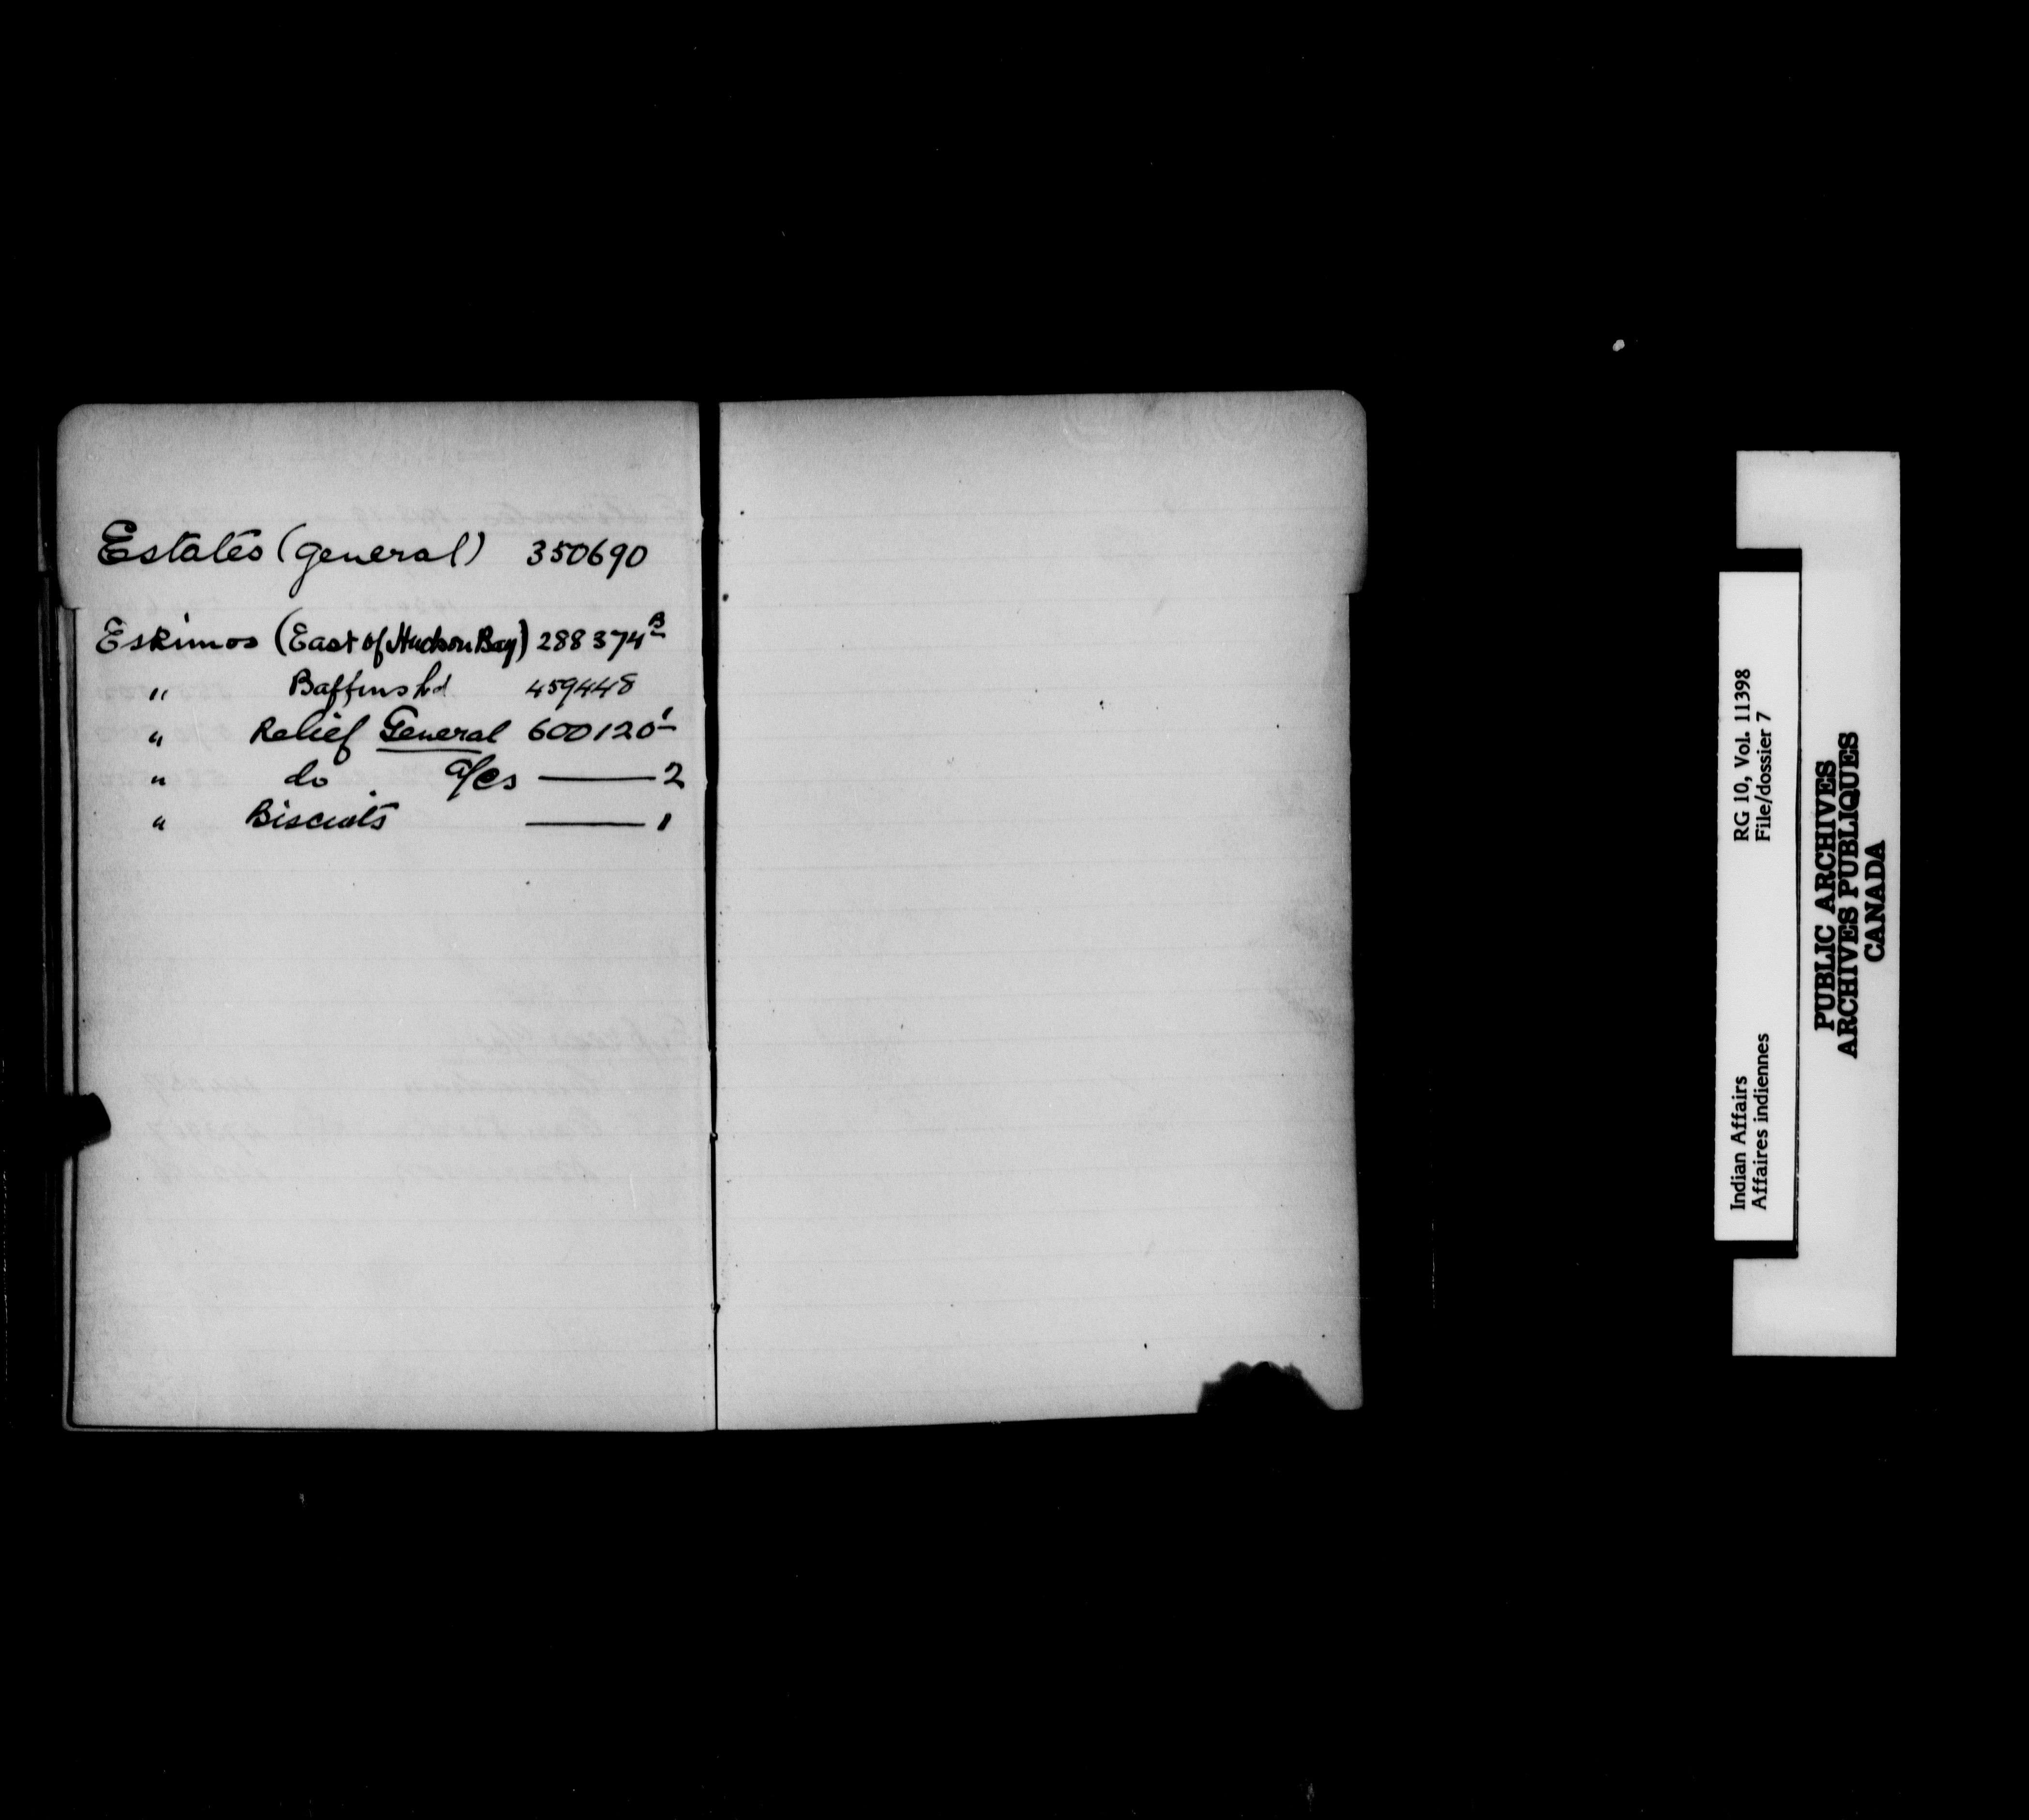 Estates (general) 350690
Eskimos (East of Hudson Bay) 288374B
" Baffins Ld 459448
" Relief General 600120-1
" do a/cs ——— 2
" Biscuits ——— 1
Indian Affairs RG 10, Vol. 11398
Affaires indiennes File/dossier 7
PUBLIC ARCHIVES
ARCHIVES PUBLIQUES
CANADA